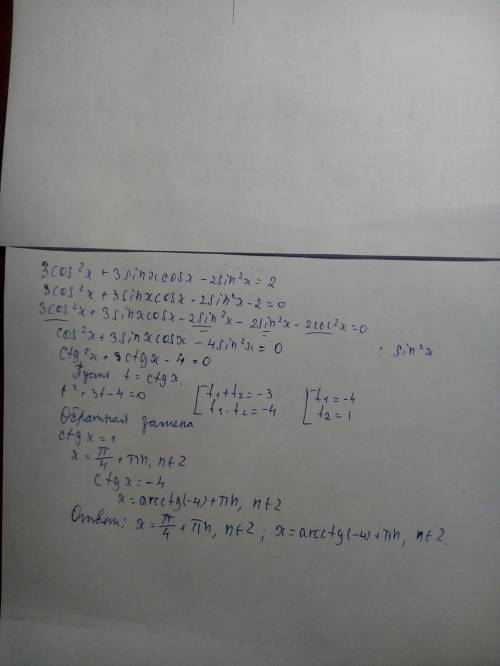 3cos²x + 3sinxcosx - 2sin²x = 2
3cos²x + 3sinxcosx - 2sin²x - 2 = 0
3cos²x + 3sinxcosx - 2sin²x - 2sin²x - 2cos²x = 0
cos²x + 3sinxcosx - 4sin²x = 0 : sin²x
ctg²x + 3ctgx - 4 = 0
Пусть t = ctgx.
t² + 3t - 4 = 0 [ t₁ + t₂ = -3 [ t₁ = -4
t₁ · t₂ = -4 t₂ = 1
Обратная замена
ctgx = 1
x = π/4 + πn, n∈Z
ctgx = -4
x = arcctg(-4) + πn, n∈Z
Ответ: x = π/4 + πn, n∈Z; x = arcctg(-4) + πn, n∈Z.